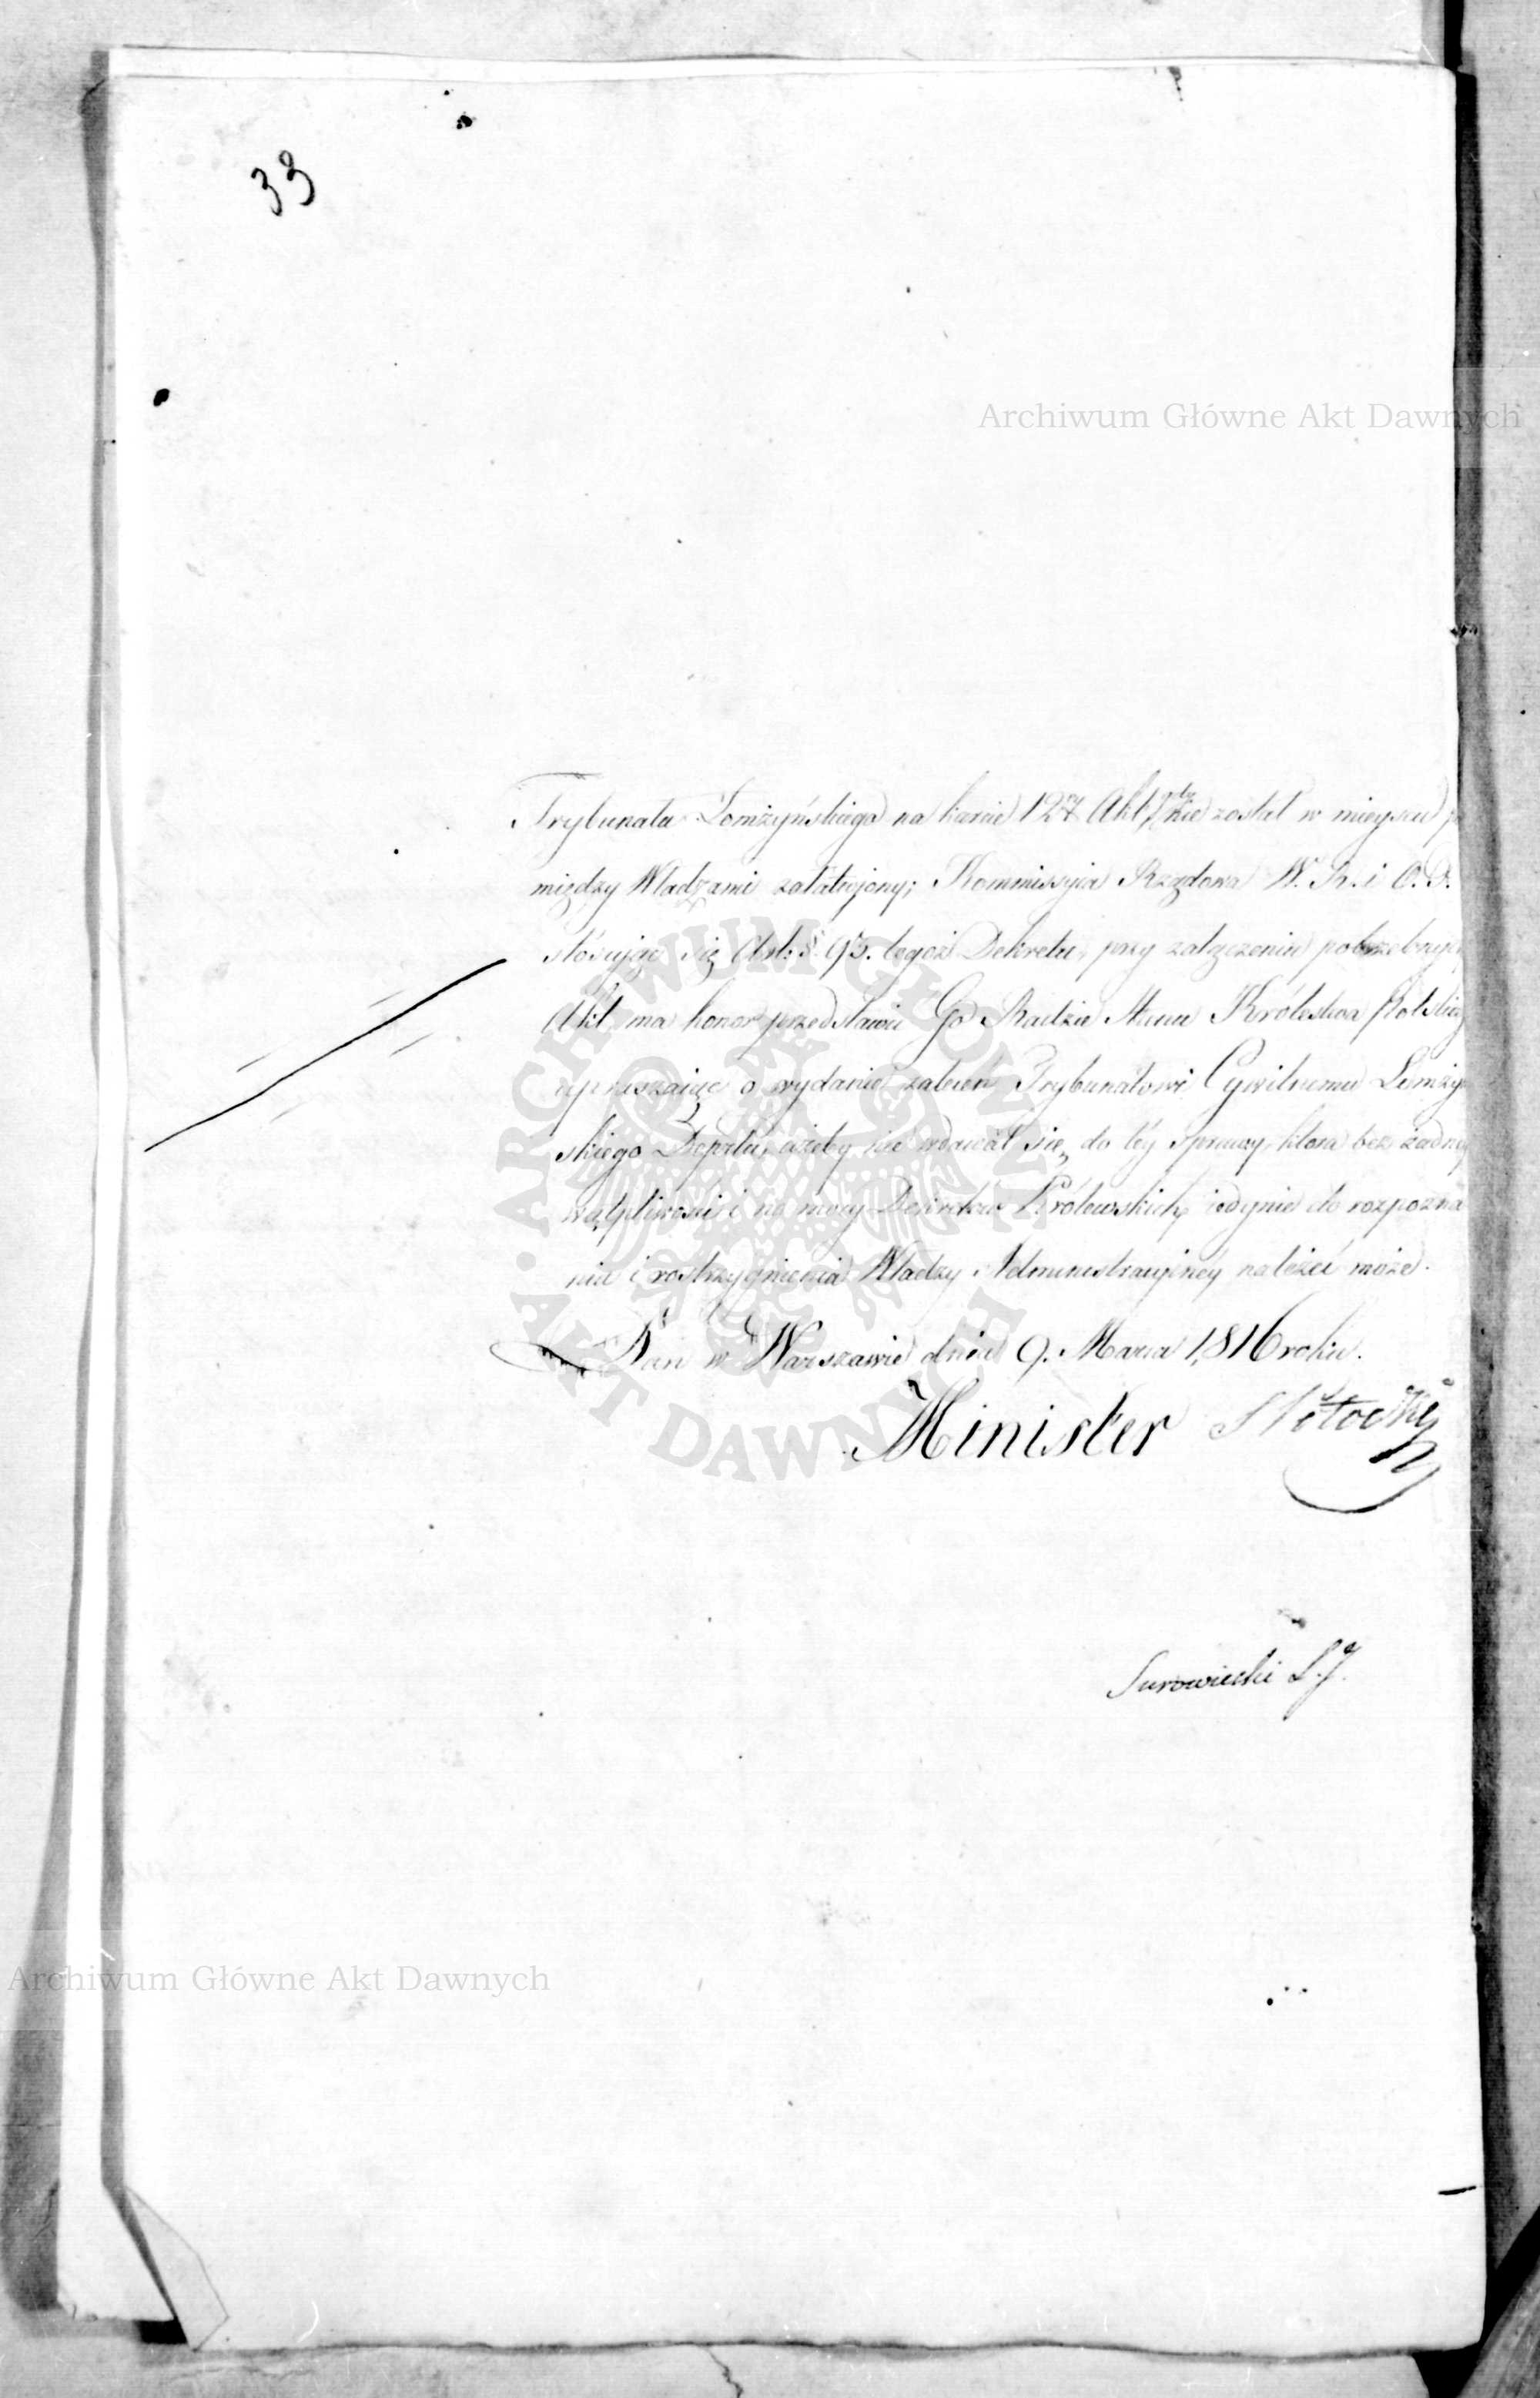 33
Archiwum Główne Akt Dawnych
Trybunału Łomżyńskiego na karcie 127 Akt, został w mieyscu
między Władzami załatwiony; Kommissyia Rządowa W. R. i O. P.
stósuiąc się Art: § 95. tegoż Dekretu, przy załączeniu potrzebnych
Akt ma honor przedstawić Go Radzie Stanu Królestwa Polskie
upraszaiąc o wydanie zaleceń Trybunałowi Cywilnemu Łomżyń
skiego Deprtu, ażeby nie wdawał się do téy sprawy, która bez żadney
wątpliwości i na mocy Dekretów Królewskich, iedynie do rozpozna
nia i rostrzygnienia Władzy Administracyinéy należeć może.
Dan w Warszawie dnia 9. Marca 1,816 roku.
Minister Potocki
Surowiecki S. J.
Archiwum Główne Akt Dawnych
ARCHIWUM GŁÓWNE
AKT DAWNYCH